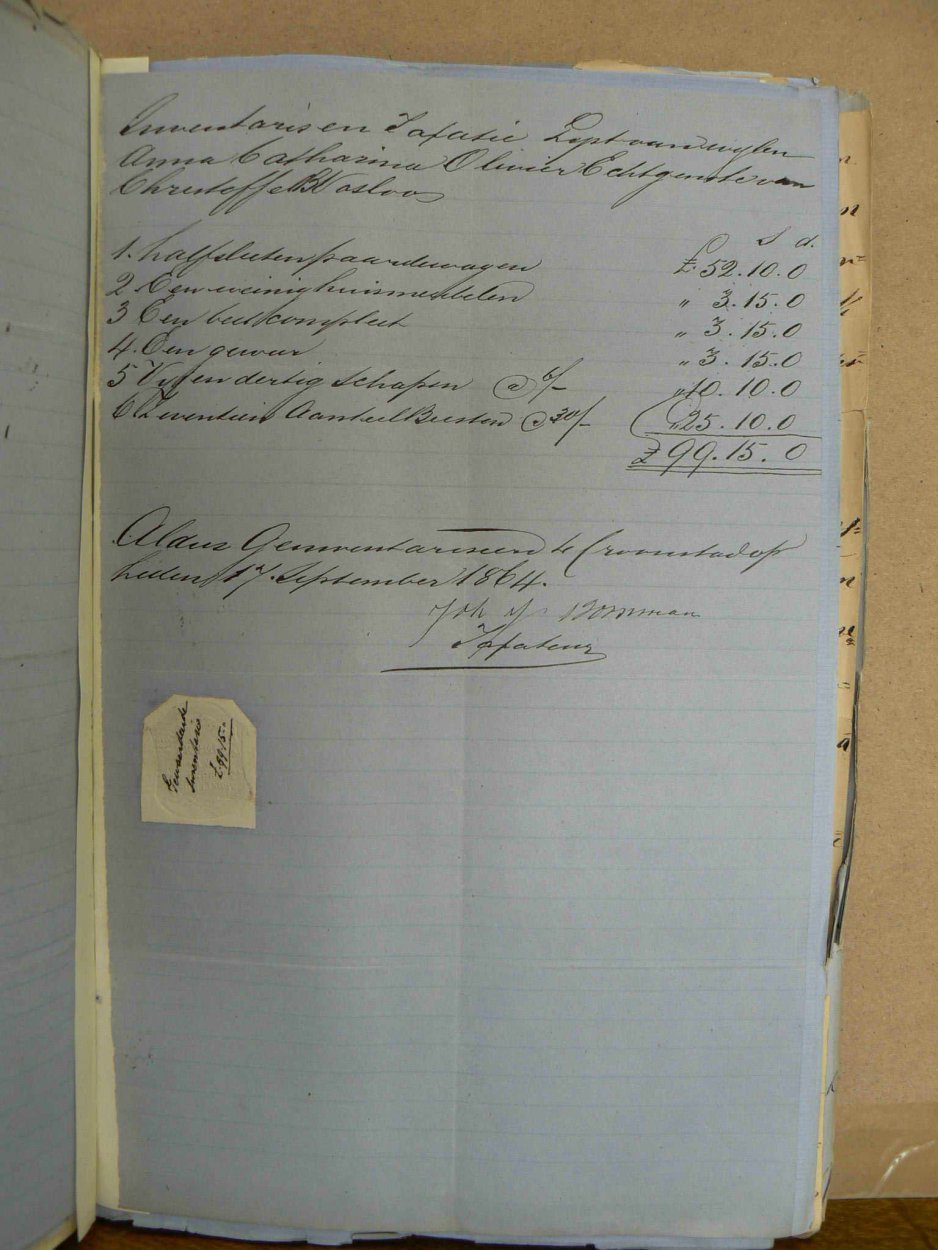 Inventaris en Taxatie Zept van wylen
Anna Catharina Olivier Echtgenote van
Christoffel B Vosloo
S d.
1. halfsleten paardewagen £ 52.10.0
2 Een weinig huismeubelen " 3.15.0
3 Een bed compleet " 3.15.0
4. Een geweer " 3.15.0
5 Vyf en dertig schapen @ 6/- " 10.10.0
6 Zeventien Aanteel Beesten @ 30/- " 25.10.0
£ 99.15.0
Aldus Geinventariseerd te Croonstad op
heden 17 September 1864.
Joh J Bornman
Taxateur
Inventaris
£ 99.15.0